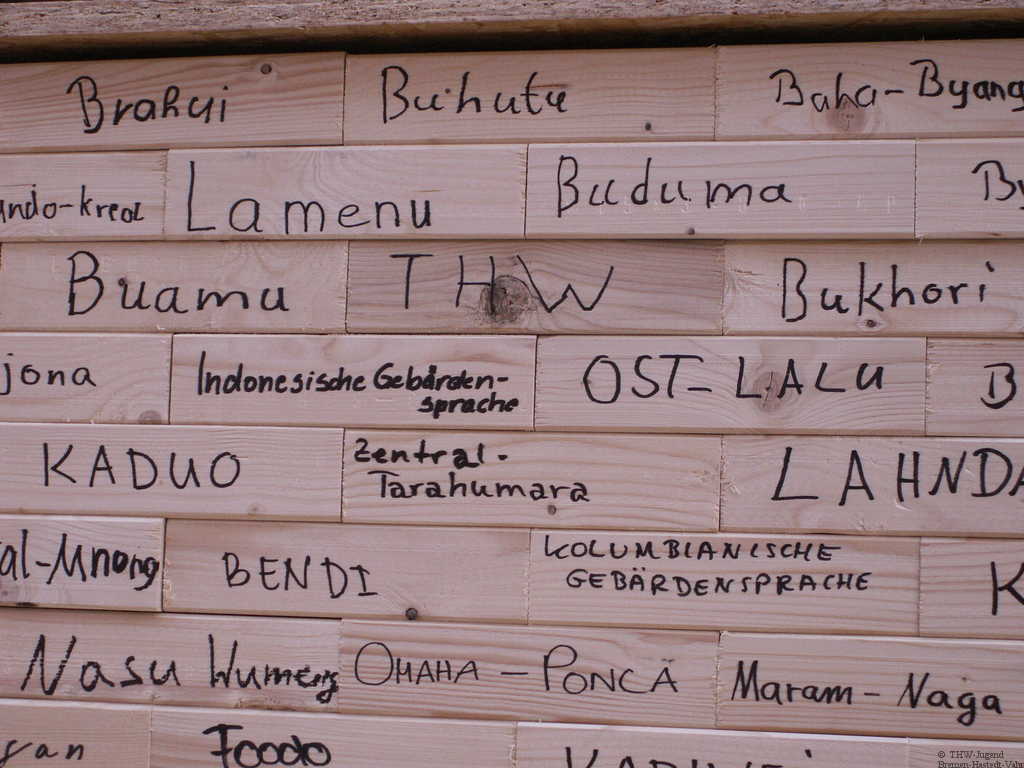 Brahui Buhutu Baha-Byang
Lamenu Buduma
Buamu THW Bukhori
jona Indonesische Gebärden-
sprache OST-LALU B
KADUO Zentral-
Tarahumara LAHNDA
al-Mnong BENDI KOLUMBIANISCHE
GEBÄRDENSPRACHE K
Nasu Wumeng OMAHA-PONCA Maram-Naga
Foodo
© THW-Jugend